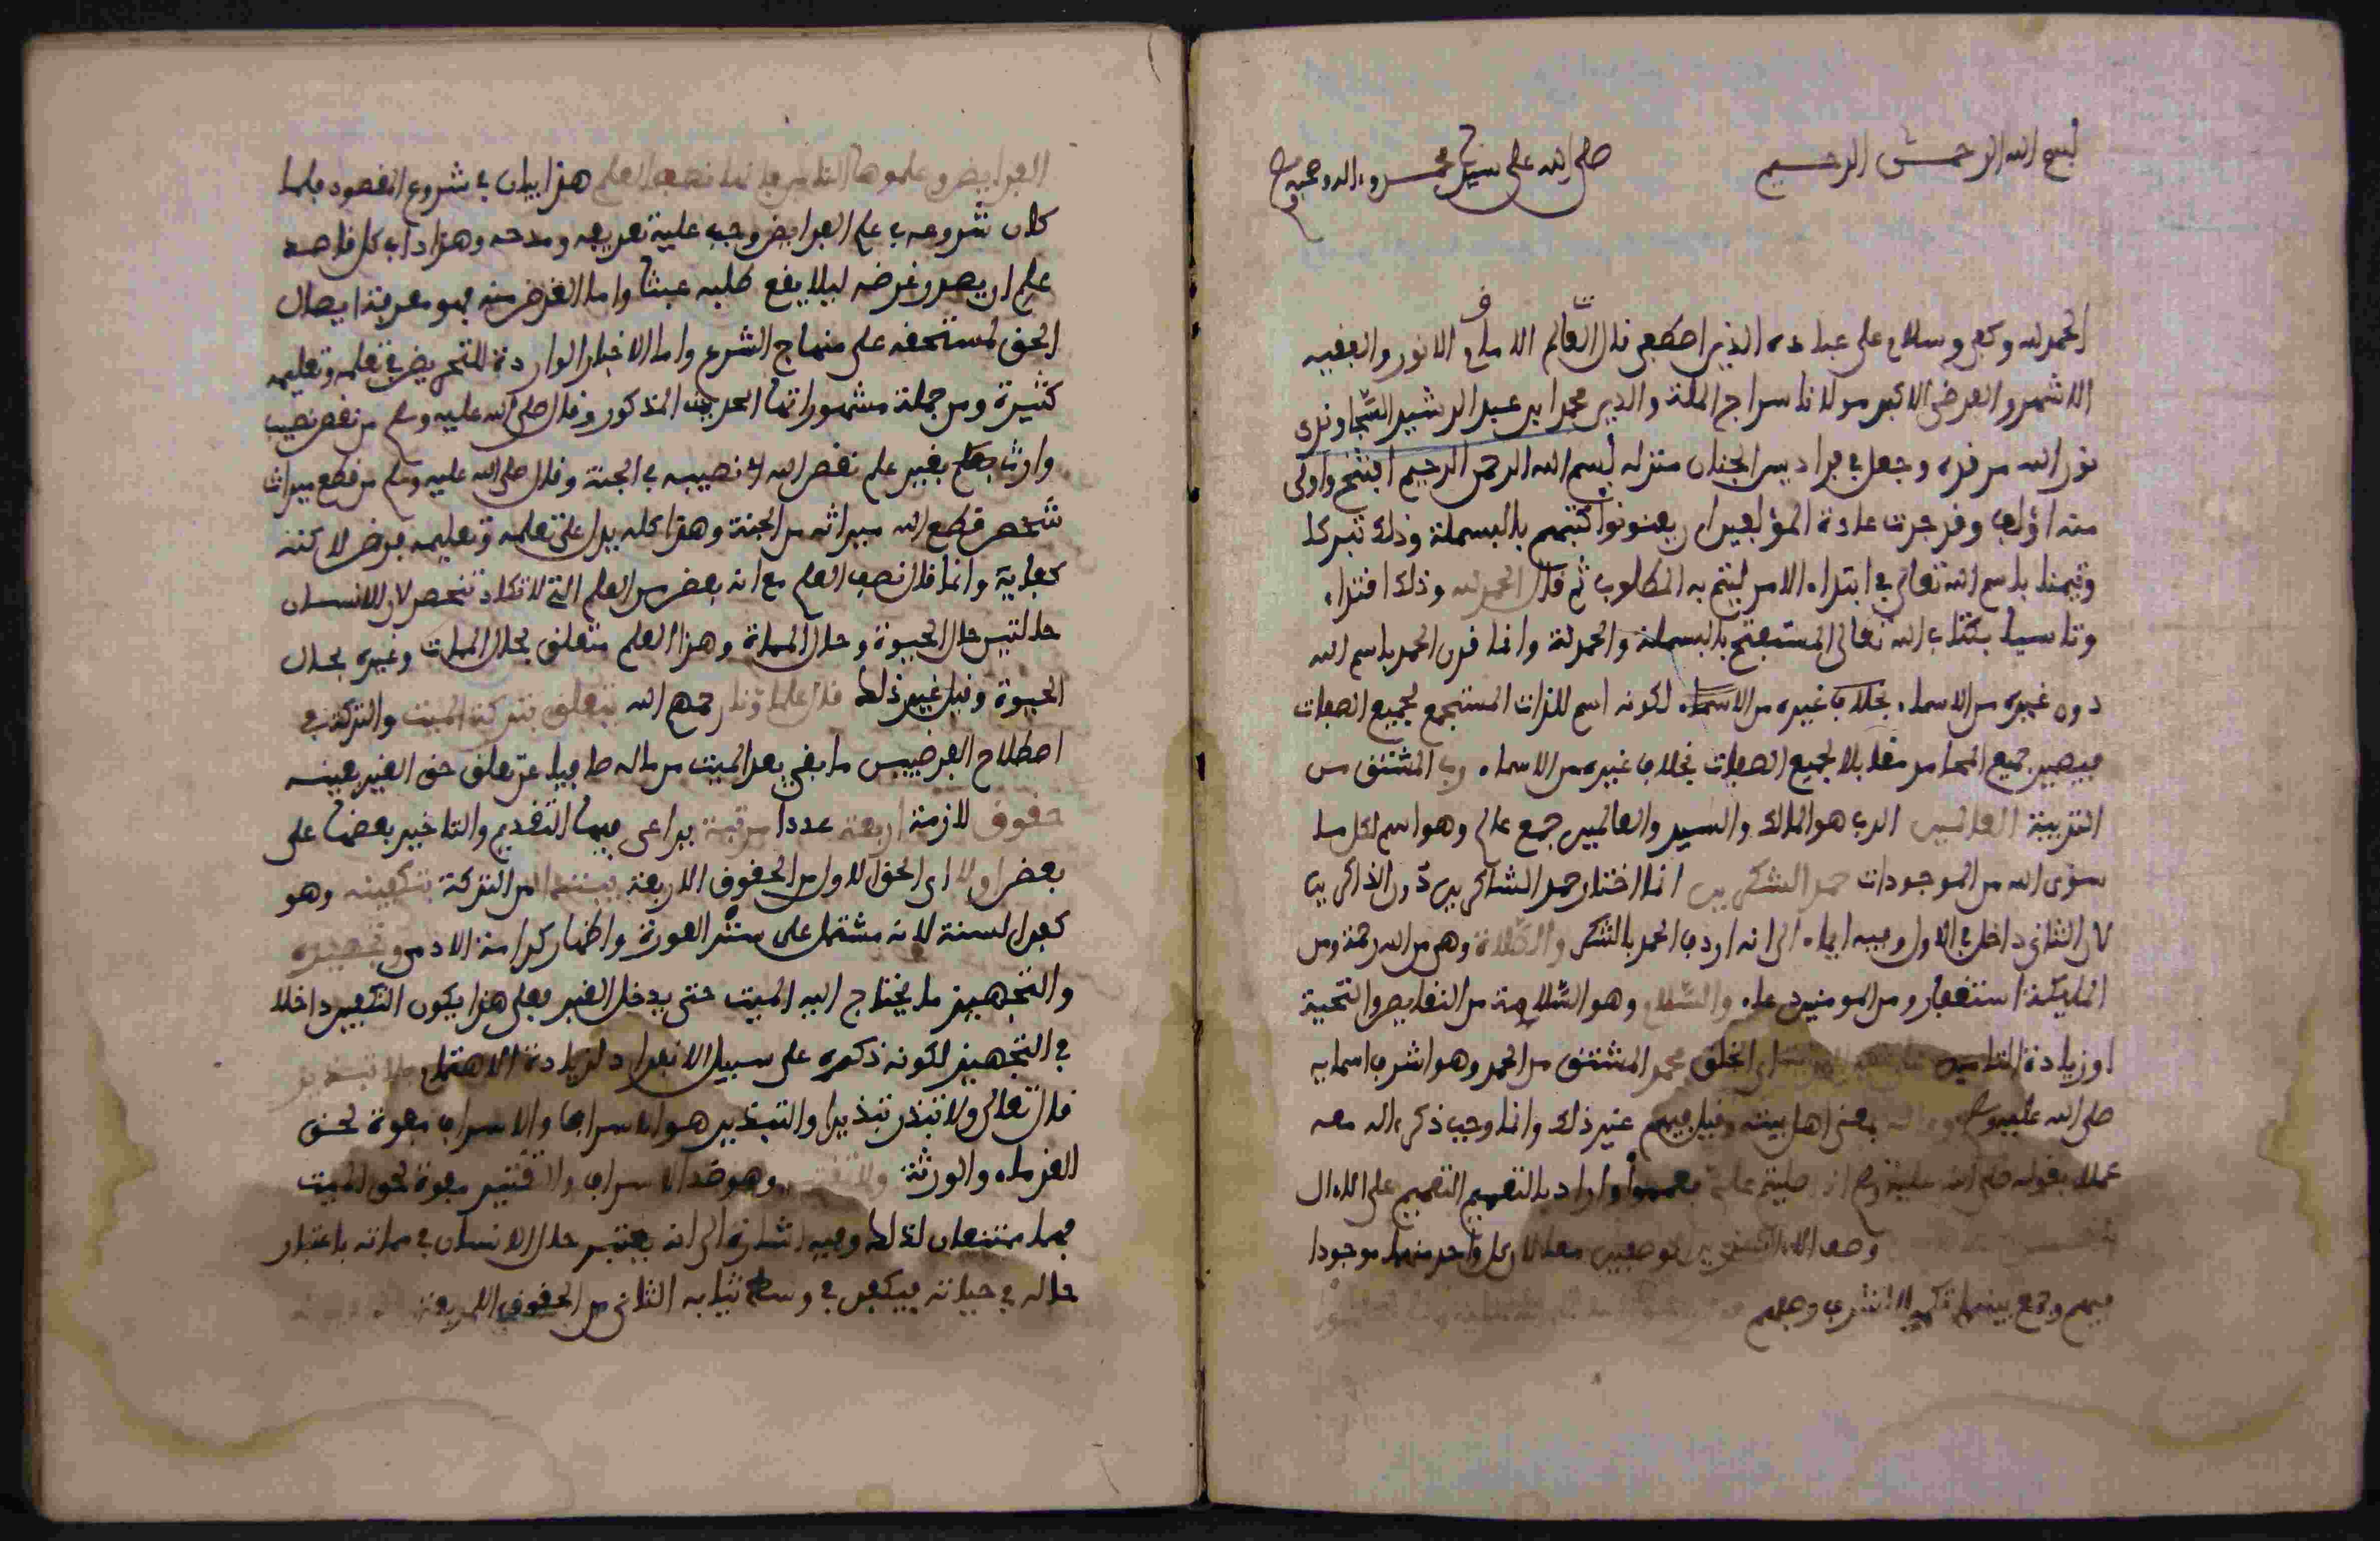 بسم الله الرحمن الرحيم
صلى الله على سيدنا محمد وءاله وصحبه
الحمد لله وكفى وسلام على عباده الذين اصطفى قال العالم الامام الانور والفقيه
الاشهر والفرضي الاكبر مولانا سراج الملة والدين محمد ابن عبد الرشيد السجاوندي
نور الله مرقده وجعل في فراديس الجنان منزله بسم الله الرحمن الرحيم افتتح واولى
منه اؤلف وقد جرت عادة المؤلفين ان يعنونوا كتبهم بالبسملة وذلك تبركا
وتيمنا باسم الله تعالى في ابتداء الامر ليتم به المطلوب ثم قال الحمد لله وذلك اقتداء
وتاسيا بكتاب الله تعالى المستفتح بالبسملة والحمدلة وانما قرن الحمد باسم الله
دون غيره من الاسماء بخلاف غيره من الاسماء لكونه اسم للذات المستجمع لجميع الصفات
فيصير جميع المحامد مقابلا لجميع الصفات بخلاف غيره من الاسماء رب المشتق من
التربية العالمين الرب هو المالك والسيد والعالمين جمع عالم وهو اسم لكل ما
سوى الله من الموجودات حمد الشكرين انما اختار حمد الشاكرين دون الذاكرين
لان الثاني داخل في الاول وفيه ايماء الى انه اردف الحمد بالشكر والصلاة وهي من الله رحمة ومن
المليكة استغفار ومن المومنين دعاء والسلام وهو السلامة من النقايص والتحية
او زيادة التامين الخلق محمد المشتق من الحمد وهو اشرف اسمايه
صلى الله عليه وسلم وءاله بمعنى اهل بيته وقيل فيهم غير ذلك وانما وجب ذكر ءاله معه
عملا بقوله صلى الله عليه وسلم اذا صليتم علي فعمموا واراد بالتعميم التعميم على الاال
وصف الاال معا لان كل واحد منهما موجودا
فيهم وجمع بينهما
الفرايض وعلموها الناس فانها نصف العلم هذا بيان في شروع المقصود فلما
كان شروعه في علم الفرايض وجب عليه تعريفه ومدحه وهذا داب كل قاصد
علم ان يصدر غرضه ليلا يقع طلبه عبثا واما الغرض منه فهو معرفة ايصال
الحق لمستحقه على منهاج الشرع واما الاخبار الواردة للتحريض في تعلمه وتعليمه
كثيرة ومن جملة مشهوراتها الحديث المذكور وقال صلى الله عليه وسلم من نقص نصيب
وارث بغير علم نقص الله نصيبه في الجنة وقال صلى الله عليه وسلم من قطع ميراث
شخص قطع الله ميراثه من الجنة وهذا كله يدل على تعلمه وتعليمه فرض لاكنه
كفاية وانما قال نصف العلم مع انه بعض من العلم التي لا تكاد تنحصر لان للانسان
حالتين حال الحيوة وحال المماة وهذا العلم متعلق بحال الممات وغيره بحال
الحيوة وقيل غير ذلك قال علماؤنا رحمهم الله تتعلق بتركة الميت والتركة في
اصطلاح الفرضيين ما بقي بعد الميت من ماله صافيا عن تعلق حق الغير بعينه
حقوق لازمة اربعة عددا مرتبة يراعى فيها التقديم والتاخير بعضها على
بعض اولا اي الحق الاول من الحقوق الاربعة يبتدا من التركة بتكفينه وهو
كفن السنة لانه مشتمل على ستر العورة واظهار كرامة الادمي وتجهيزه
والتجهيز ما يحتاج اليه الميت حتى يدخل القبر فعلى هذا يكون التكفين داخلا
في التجهيز لكونه ذكره على سبيل الانفراد لزيادة الاهتمام بلا تبذير
قال تعالى ولا تبذر تبذيرا والتبذير هو الاسراف والاسراف مفوة لحق
الغرماء والورثة ولا تقتير وهو ضد الاسراف والتقتير مفوة لحق الميت
فهما ممتنعان لذلك وفيه اشارة الى انه يعتبر حال الانسان في مماته باعتبار
حاله في حياته فيكفن في وسط ثيابه الثاني من الحقوق الاربعة